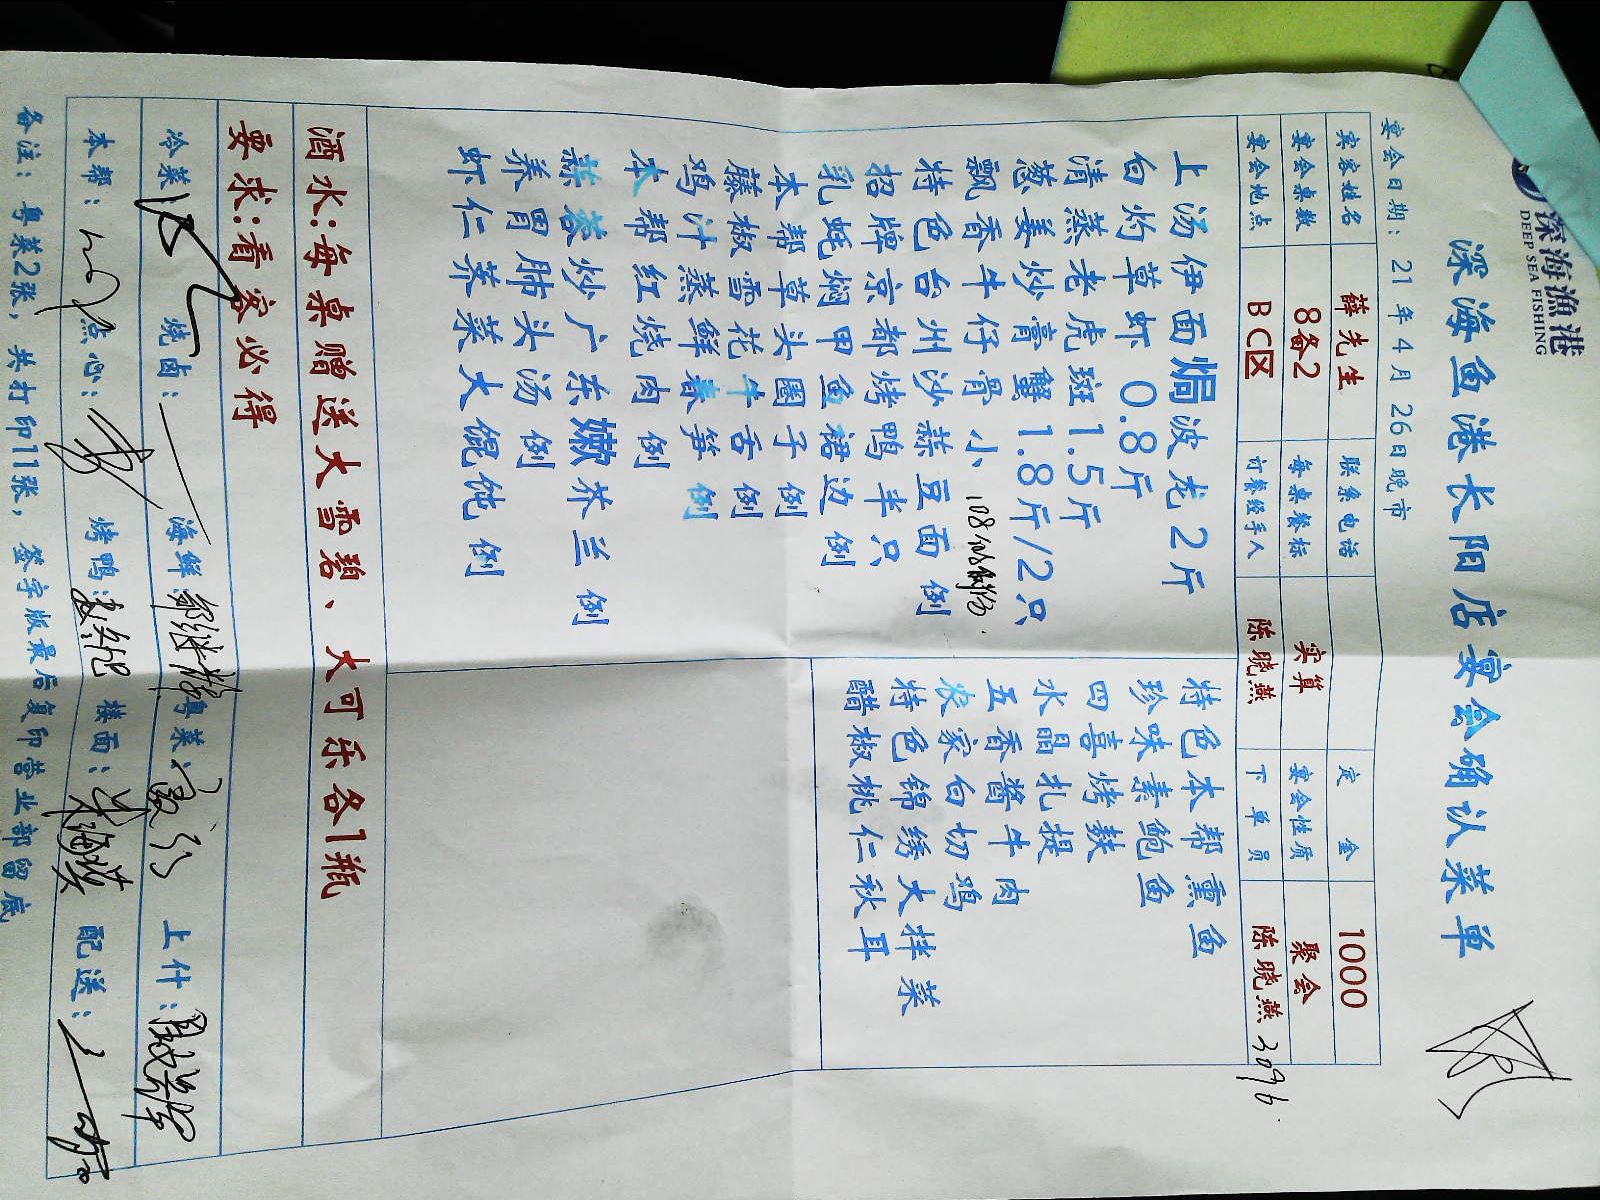 深海漁港
DEEP SEA FISHING
深海鱼港长阳店宴会确认菜单
宴会日期: 21年4月26日晚市
宾客姓名 薛先生 联系电话 定金 1000
宴会桌数 8备2 每桌餐标 实算 宴会性质 聚会
宴会地点 BC区 订餐经手人 陈晓燕 下单员 陈晓燕 3096
上汤伊面焗波龙2斤
白灼草虾 0.8斤
清蒸老虎斑 1.5斤
葱姜炒膏蟹 1.8斤/2只
飘香牛仔骨 小
特色台州沙蒜豆面 例
招牌京都烤鸭半只
乳蚝焖甲鱼裙边 例
本帮草头圈子 例
藤椒雪花牛舌 例
鸡汁蒸鲜春笋 例
本帮红烧肉 例
蒜蓉炒广东嫩芥兰 例
养胃肺头汤 例
虾仁荠菜大馄饨 例
特色本帮熏鱼
珍味素鲍鱼
四喜烤麸
水晶扎提
五香酱牛肉
农家白切鸡
特色锦绣大拌菜
醋椒桃仁秋耳
酒水:每桌赠送大雪碧、大可乐各1瓶
要求:看客必得
冷菜 烧卤: 海鲜 粤菜: 上什:
本帮: 点心: 烤鸭: 楼面: 配送:
备注: 粤菜2张, 共打印11张, 签字版最后复印营业部留底